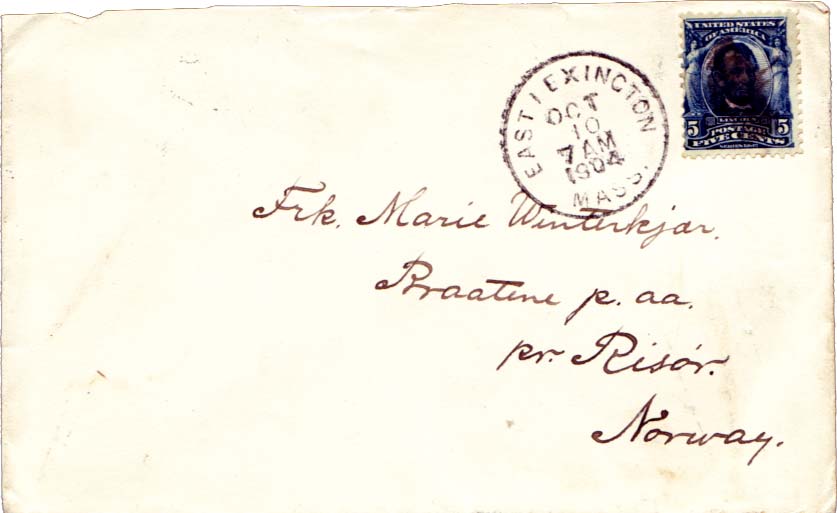 EAST LEXINGTON
OCT
10
7 AM
1904
MASS.
UNITED STATES
OF AMERICA
LINCOLN
5 POSTAGE 5
FIVE CENTS
Frk. Marie Winterkjær.
Braatene p. aa.
pr. Risør.
Norway.